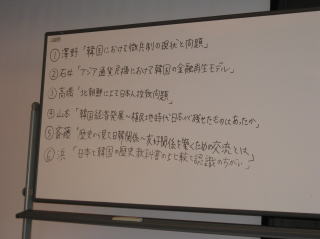 ①澤野「韓国における徴兵制の現状と問題」
②石井「アジア通貨危機における韓国の金融再生モデル」
③高橋「北朝鮮による日本人拉致問題」
④山本「韓国経済発展〜植民地時代日本が残せたものはあったか」
⑤斎藤「歴史から見て日韓関係〜友好関係を築くための交流とは」
⑥浜「日本と韓国の歴史教科書の比較と認識のちがい」